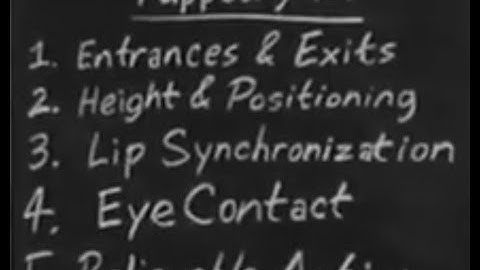 1. Entrances & Exits
2. Height & Positioning
3. Lip Synchronization
4. Eye Contact